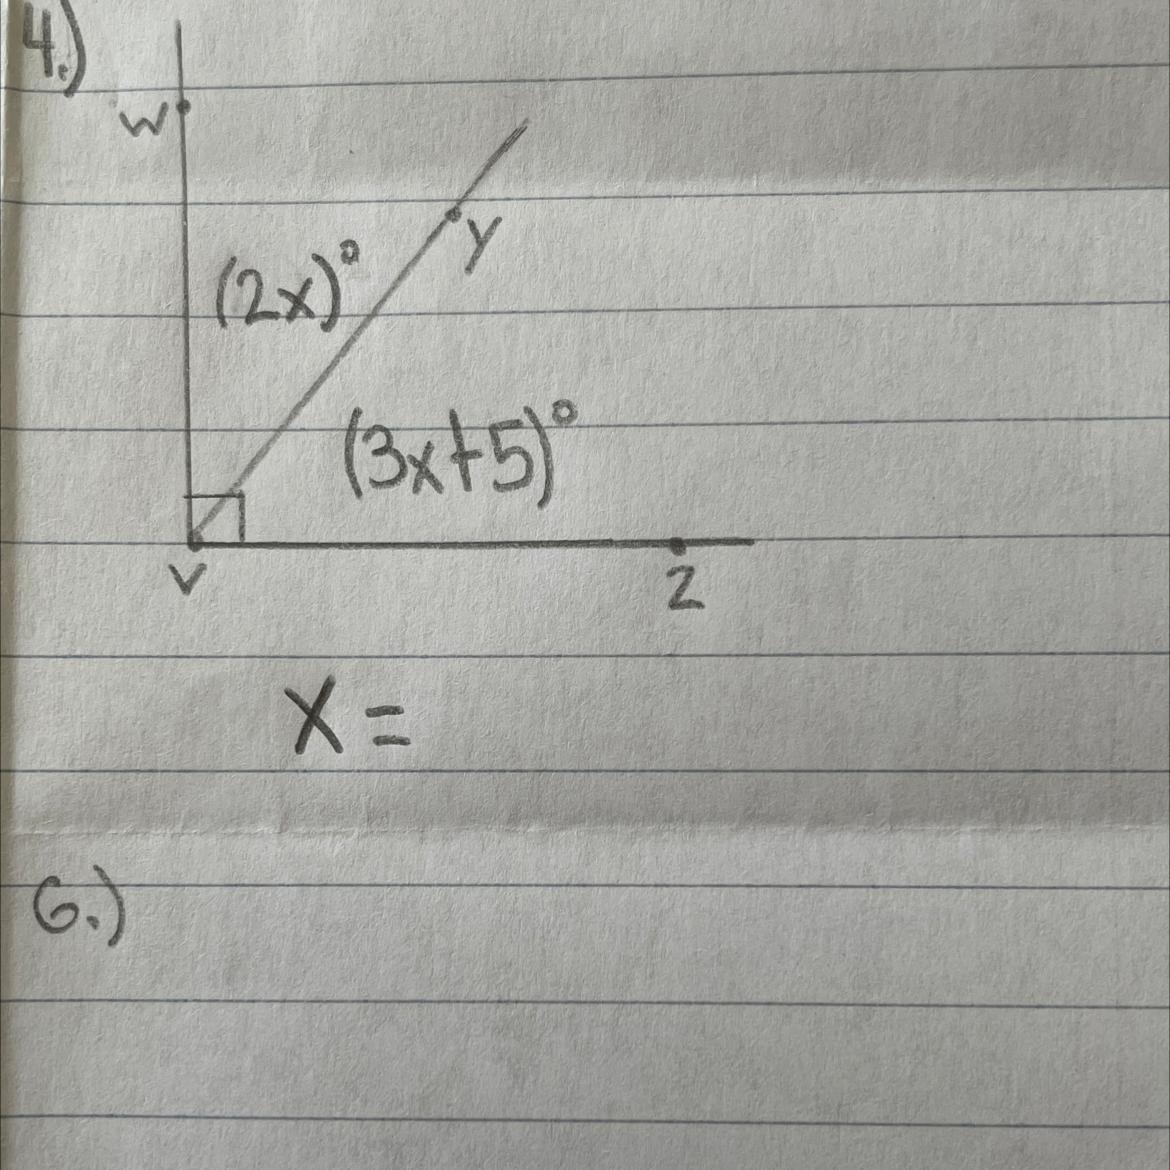 4.)
W
y
(2x)°
(3x+5)°
V
Z
X =
6.)